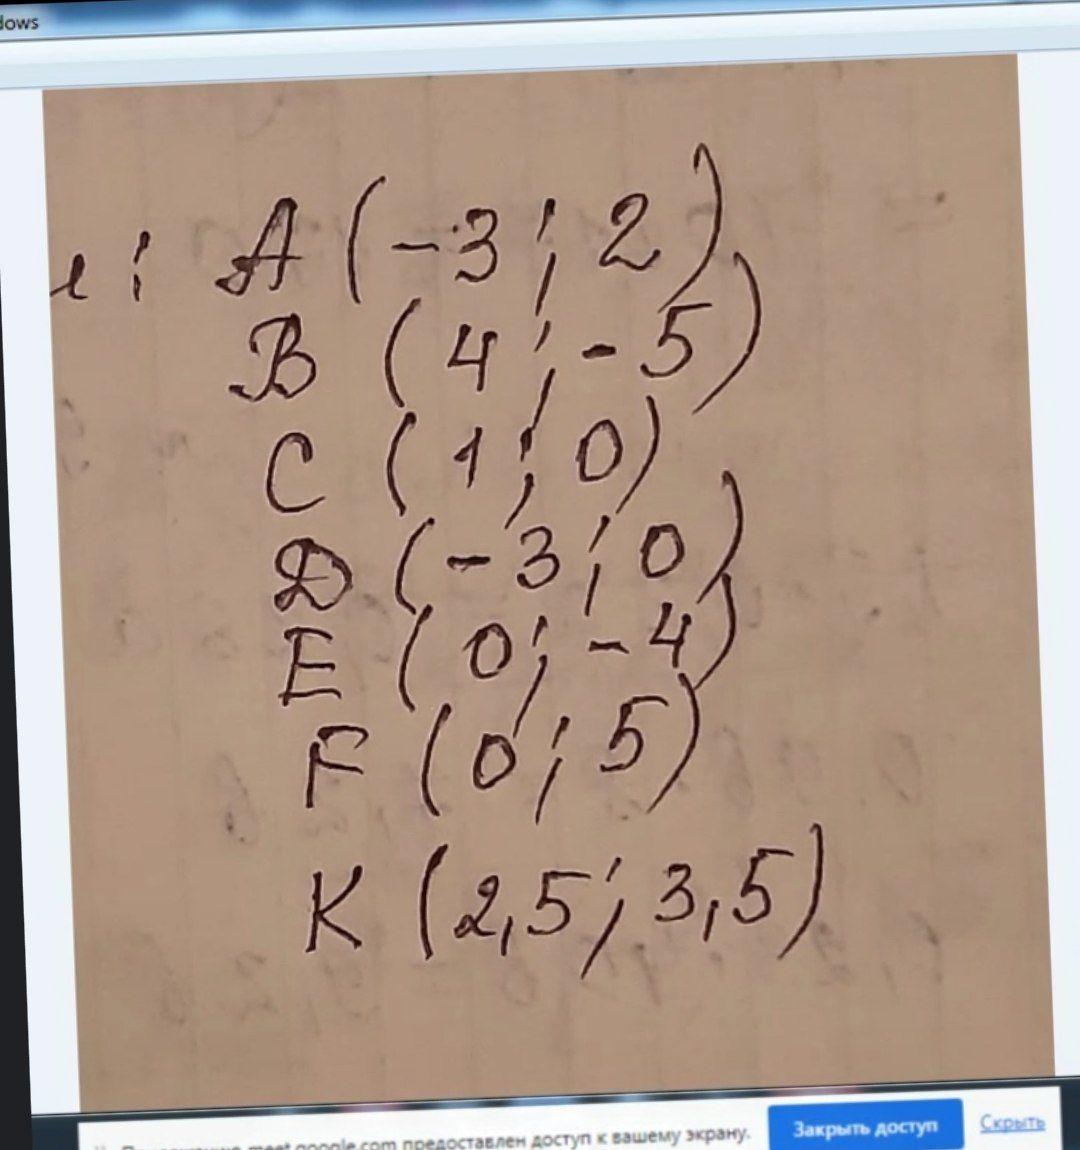 dows
: A (-3; 2)
B (4; -5)
C (1; 0)
D (-3; 0)
E (0; -4)
F (0; 5)
K (2,5; 3,5)
meet.google.com предоставлен доступ к вашему экрану.
Закрыть доступ
Скрыть